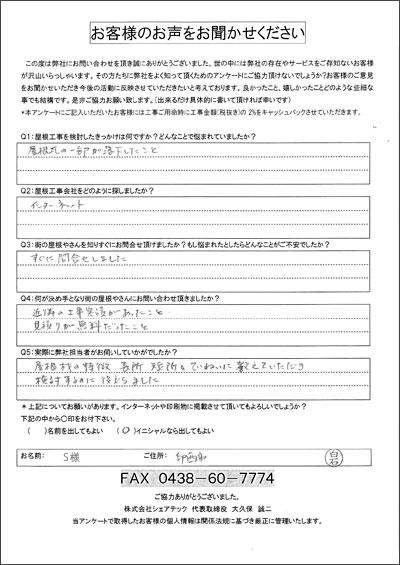 お客様のお声をお聞かせください
この度は弊社にお問い合わせを頂き誠にありがとうございました。世の中には弊社の存在やサービスをご存知ないお客様
が沢山いらっしゃいます。その方たちに弊社をよく知って頂くためのアンケートにご協力頂けないでしょうか?お客様のご意見
をお聞かせいただき今後の活動に反映させていきたいと考えております。良かったこと、嬉しかったことどのような些細な
事でも結構です。是非ご協力お願い致します。(出来るだけ具体的に書いて頂ければ幸いです)
*本アンケートにご記入いただいたお客様には工事ご用命時に工事金額(税抜き)の2%をキャッシュバックさせていただきます。
Q1:屋根工事を検討したきっかけは何ですか?どんなことで悩まれていましたか?
屋根瓦の一部が落下したこと
Q2:屋根工事会社をどのように探しましたか?
インターネット
Q3:街の屋根やさんを知りすぐにお問合せ頂けましたか?もし悩まれたとしたらどんなことがご不安でしたか?
すぐに問合せしました
Q4:何が決め手となり街の屋根やさんにお問い合わせ頂きましたか?
近隣の工事実績があったこと.
見積りが無料だったこと
Q5:実際に弊社担当者がお伺いしていかがでしたか?
屋根材の特徴 長所 短所もていねいに教えていただき
検討するのに役立ちました
*上記についてお願いがあります。インターネットや印刷物に掲載させて頂いてもよろしいでしょうか?
下記の中から〇印をお付下さい。
( )名前を出してもよい (〇)イニシャルなら出してもよい
お名前: S様 ご住所: 印西市 白石
FAX 0438-60-7774
ご協力ありがとうございました。
株式会社シェアテック 代表取締役 大久保 誠二
当アンケートで取得したお客様の個人情報は関係法規に基づき厳正に管理いたします。